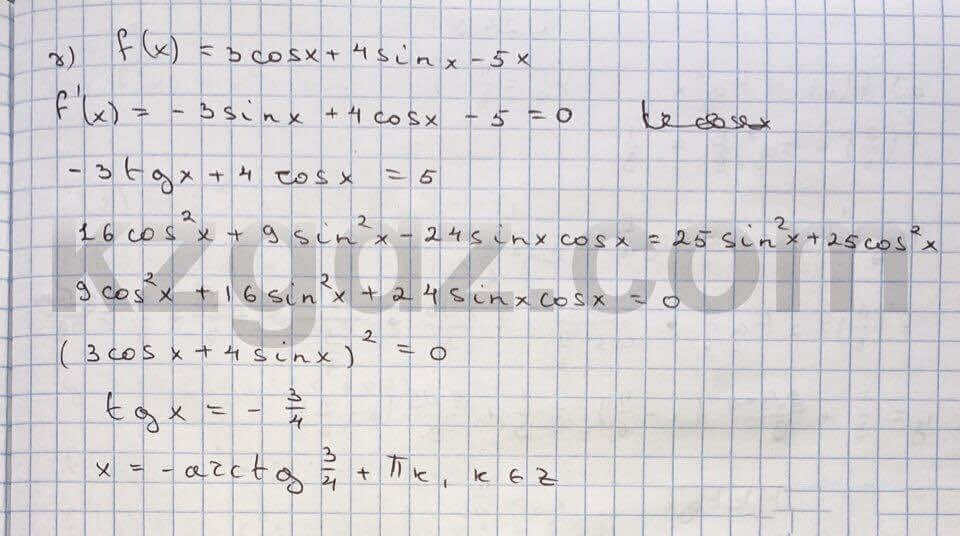 г) f(x) = 3cosx + 4sinx - 5x
f'(x) = -3sinx + 4cosx - 5 = 0
-3tgx + 4 cosx = 5
16cos²x + 9sin²x - 24sinxcosx = 25sin²x + 25cos²x
9cos²x + 16sin²x + 24sinxcosx = 0
(3cosx + 4sinx)² = 0
tgx = - 3/4
x = -arctg 3/4 + πk, k ∈ z
kzgdz.com